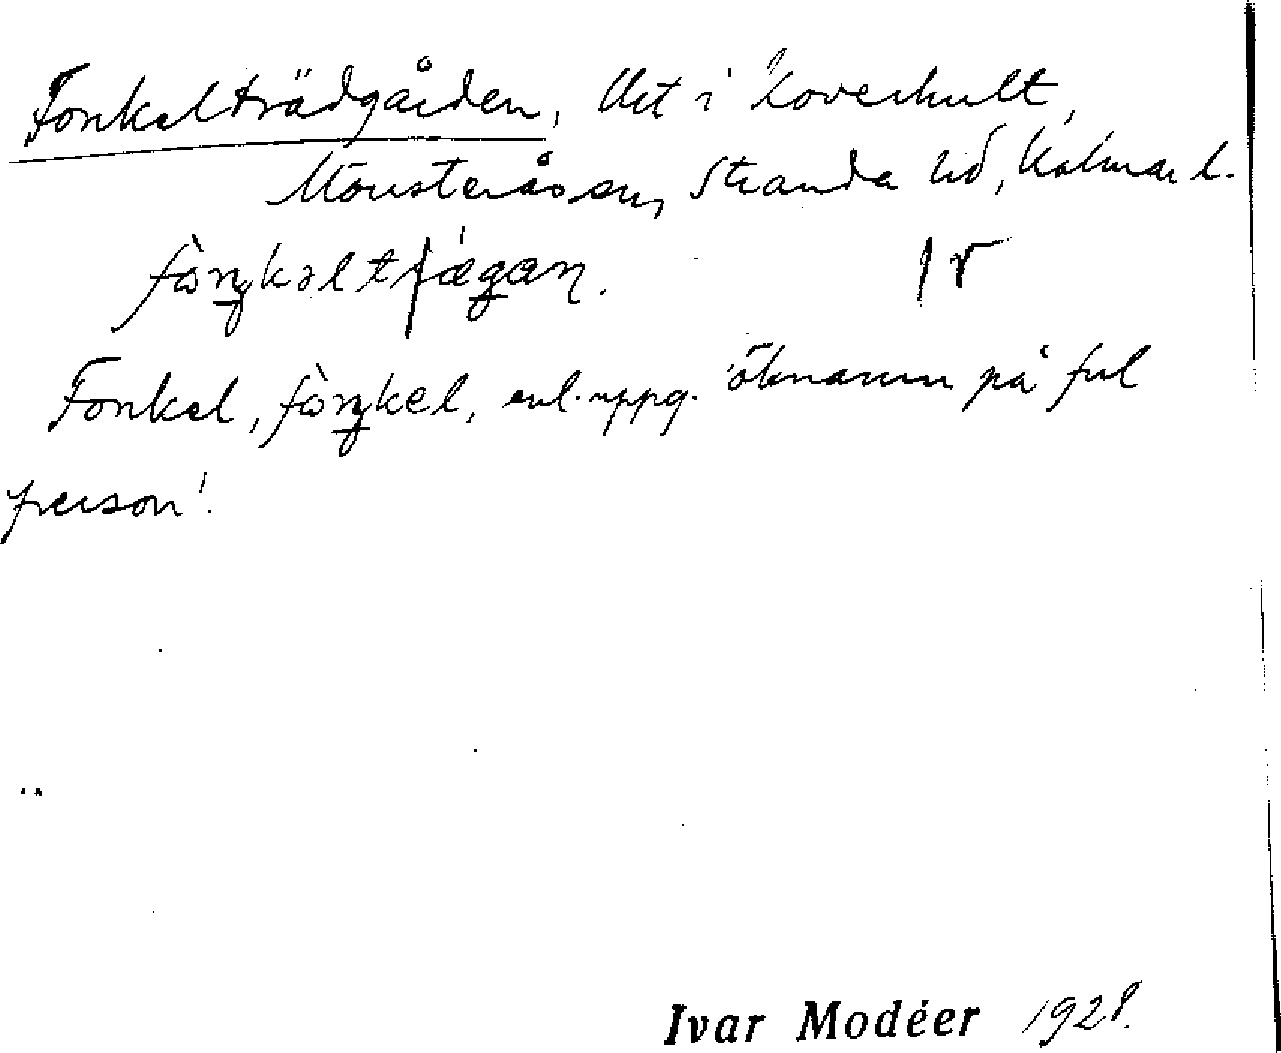 Fonkelträdgården, Utet i Koverhult,
Mönsterås sn, Stranda hd, Kalmar l.
fòŋkəltrægan. | r
Fonkel, fòŋkel, enl. uppg. 'öknamn på ful
person'.
Ivar Modéer 1928.